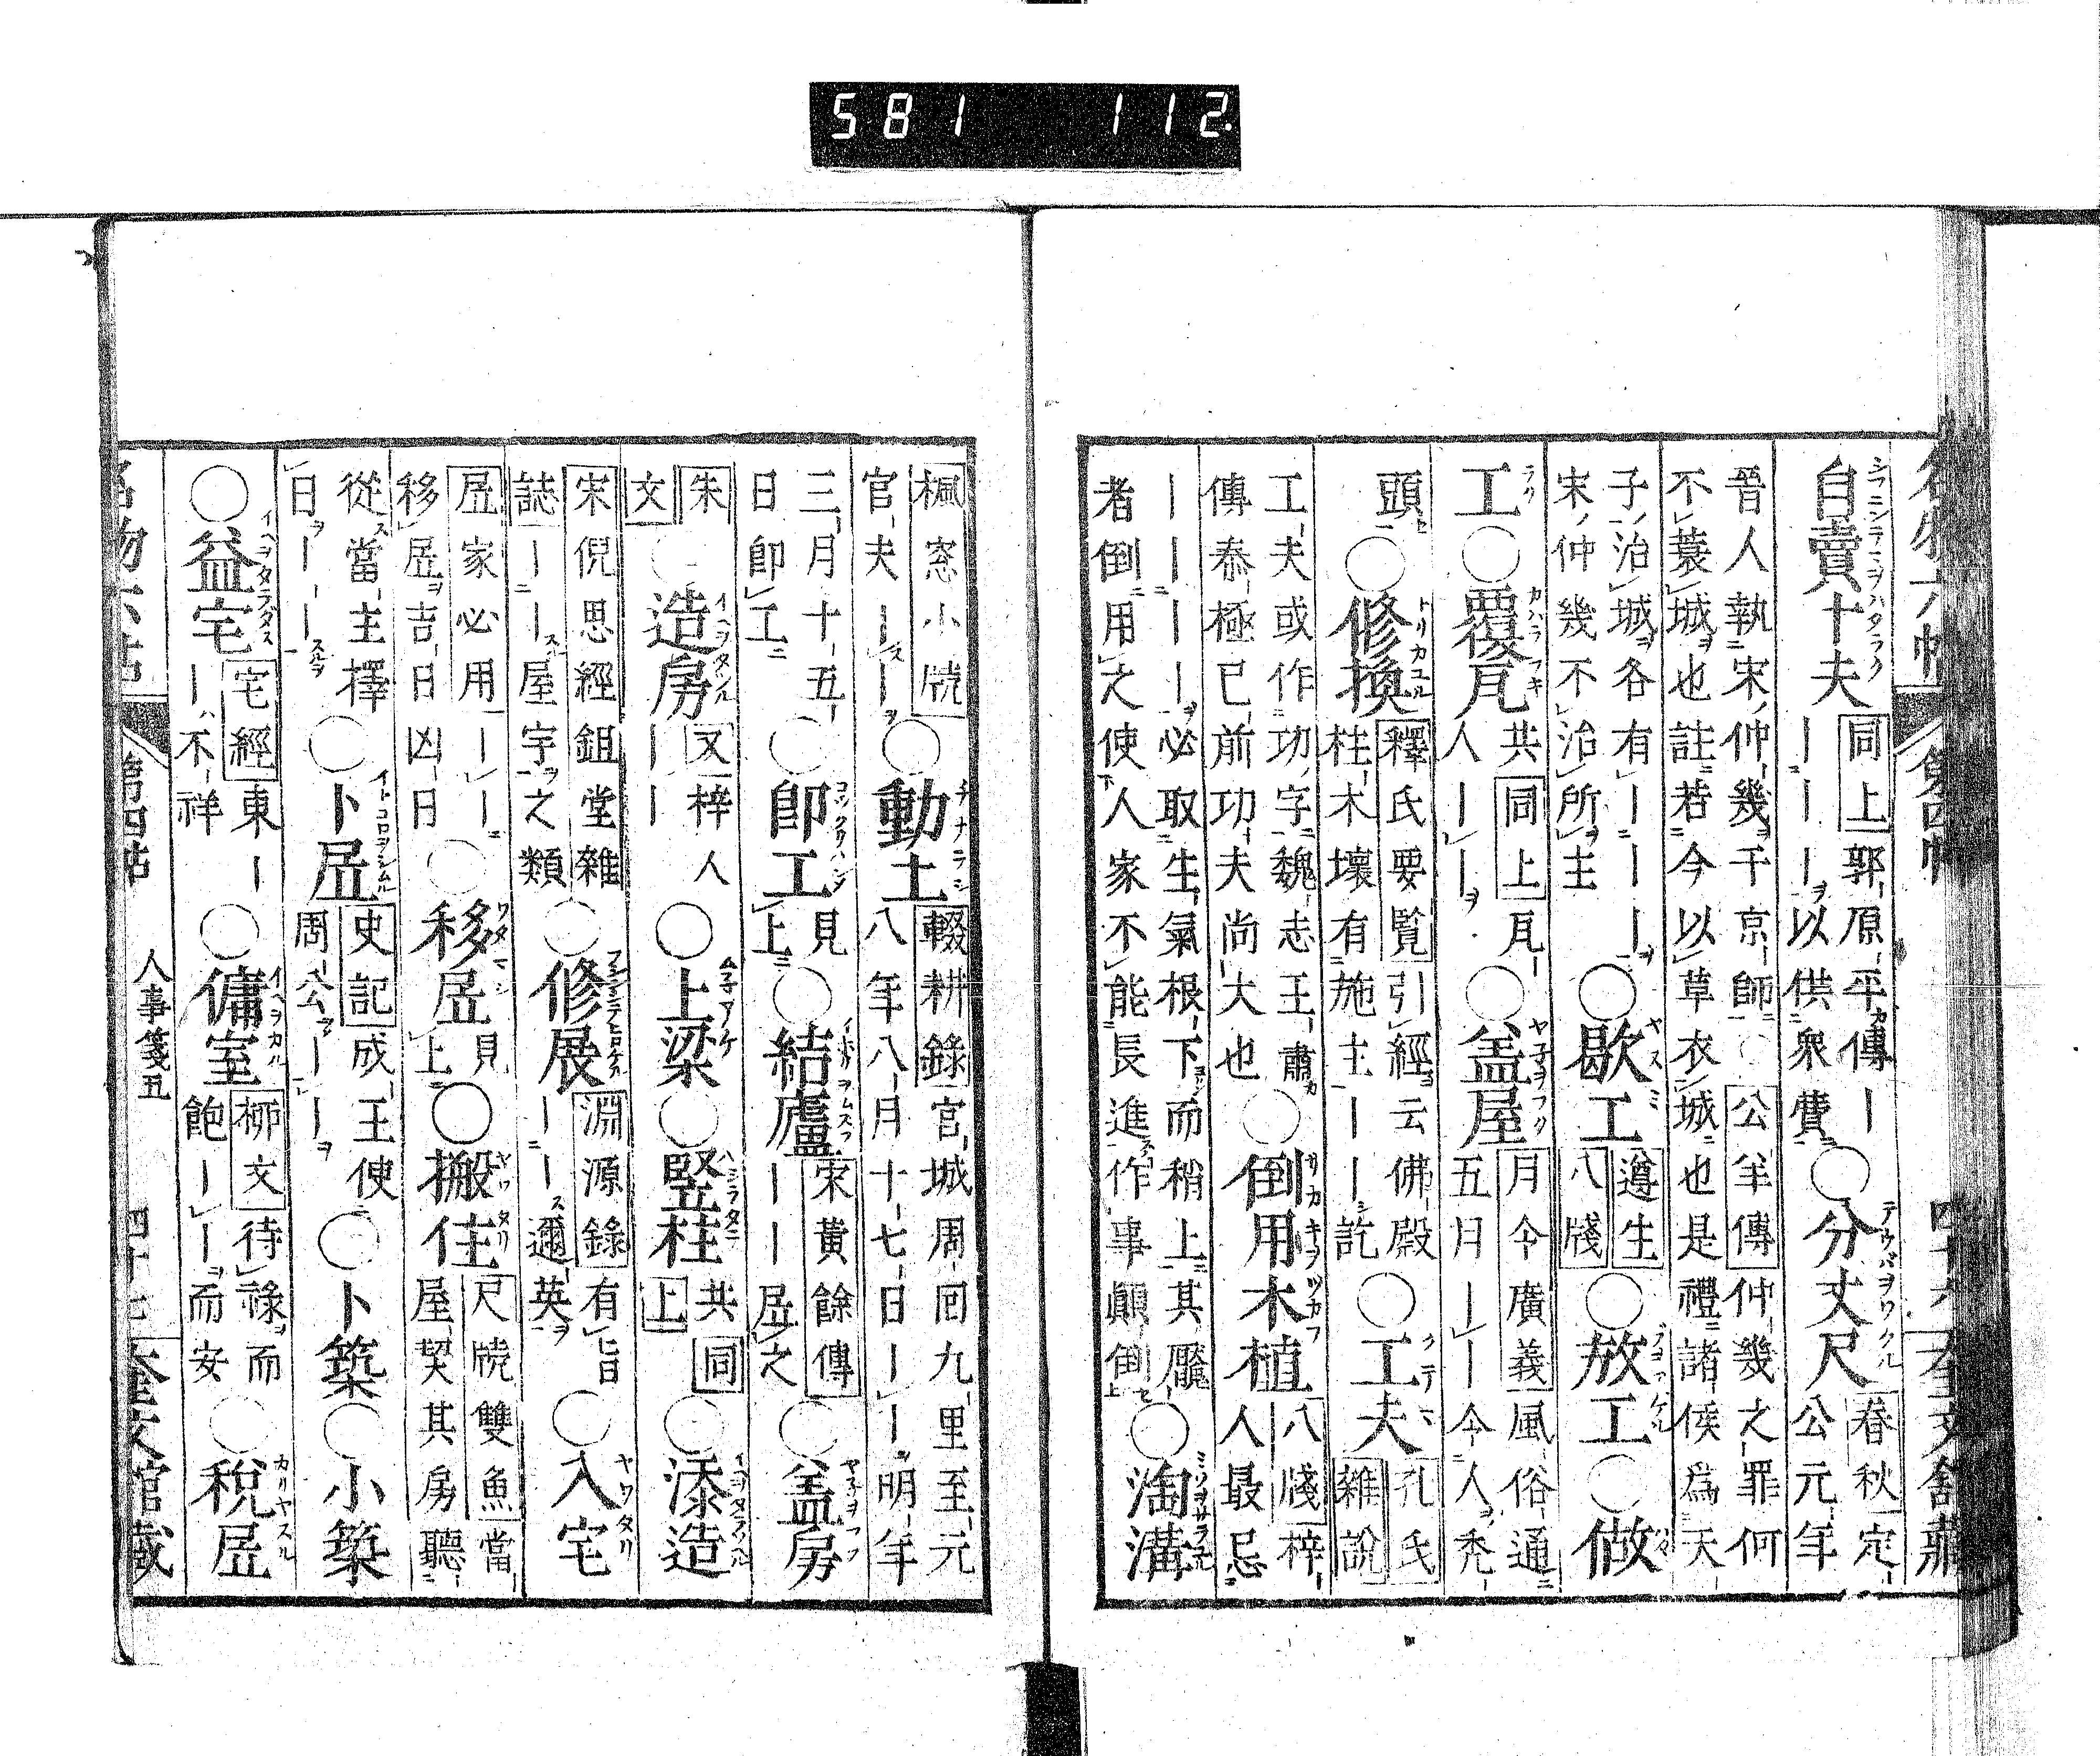 581 112
名物六帖 第四帖 四十六
自賣十夫 同上郭原平傳ー
ーーー以供衆費
○分丈尺 春秋定
公元年
晉人執宋仲幾于京師○公羊傳仲幾之罪何
不蓑城也註若今以草衣城也是禮諸侯爲天
子治城各有ーーー
宋仲幾不治所主
○歇工 遵生
八牋
○放工○做
工○覆瓦 共同上瓦
人ーー
○盖屋 月令廣義風俗通
五月ーー令人禿
頭○修換 釋氏要覽引經云佛殿
柱木壞有施主ーー訖
○工夫 孔氏
雜說
工夫或作功字魏志王肅
傳泰極已前功夫尚大也
○倒用木植 八牋梓
人最忌
ーーーー必取生氣根下而稍上其魘
者倒用之使人家不能長進作事顛倒
○淘溝
楓窓小牘
官夫ーー
○動土 輟耕錄宮城周回九里至元
八年八月十七日ーー明年
三月十五
日卽工
○卽工 見
上
○結廬 宋黃餘傳
ーー居之
○盖房
朱
文
○造房 又梓人
ーー
○上梁○竪柱 共同
上
○添造
宋倪思經鉏堂雜
誌ーー屋宇之類
○修展 淵源錄有旨
ーー邇英
○入宅
居家必用ーー
移居吉日凶日
○移居 見
上
○搬住 尺牘雙魚當
屋契其房聽
從當主擇
日ーーー
○卜居 史記成王使
周公ーー
○卜築○小築
○益宅 宅經東ー
ー不祥
○傭室 柳文待祿而
飽ーー而安
○稅居
名物六帖 第四帖 人事箋五 四十七 奎文館藏